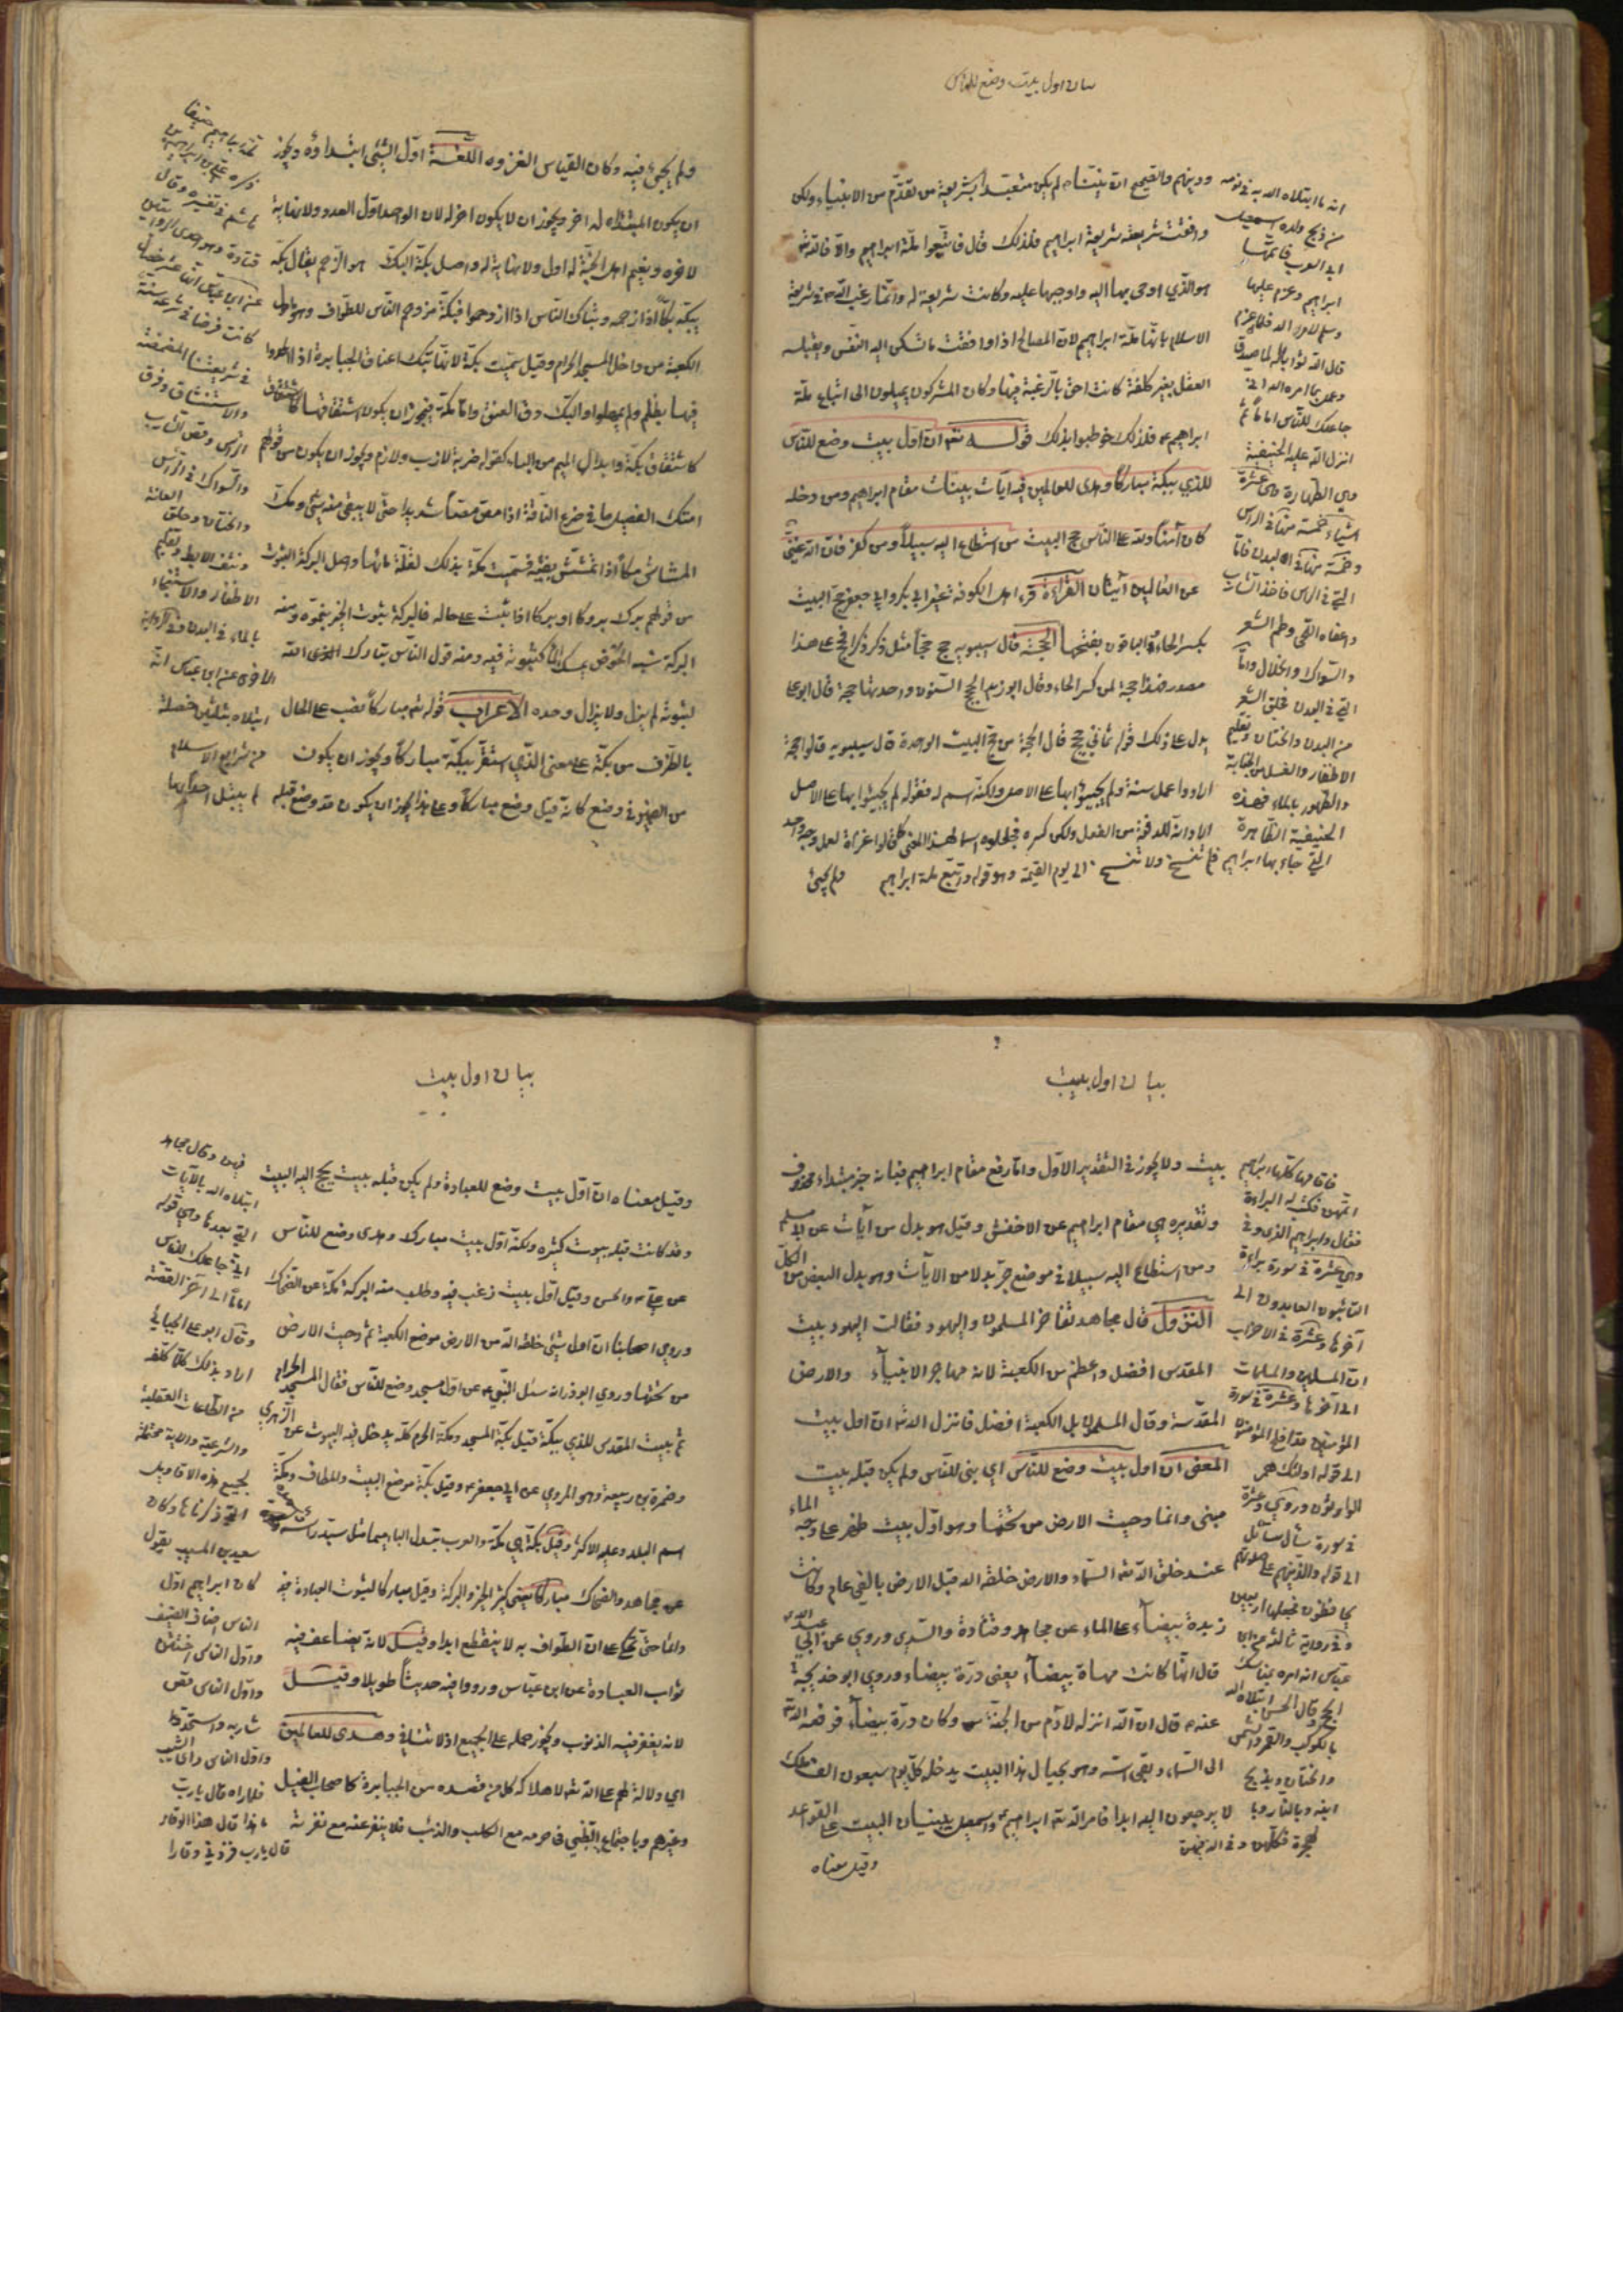 بيان اول بيت وضع للناس
ودينهم والصحيح ان نبينا لم يكن متعبدا بشريعة من تقدم من الانبياء ولكن
وافقت شريعته شريعة ابراهيم فلذلك قال فاتبعوا ملة ابراهيم والا فالله تعالى
هو الذي اوحى بها اليه واوجبها عليه وكانت شريعة له وانما رغب الله في شريعة
الاسلام بانها ملة ابراهيم لان المصالح اذا وافقت ما تسكن اليه النفس ويقبله
العقل بغير كلفة كانت احق بالرغبة فيها وكان المشركون يميلون الى اتباع ملة
ابراهيم فلذلك خوطبوا بذلك قوله تعالى ان اول بيت وضع للناس
للذي ببكة مباركا وهدى للعالمين فيه آيات بينات مقام ابراهيم ومن دخله
كان آمنا ولله على الناس حج البيت من استطاع اليه سبيلا ومن كفر فان الله غني
عن العالمين آيتان القراءة قرء اهل الكوفة غير ابي بكر وابي جعفر حج البيت
بكسر الحاء والباقون بفتحها الحجة قال سيبويه حج حجا مثل ذكر ذكرا فحج على هذا
مصدر فهذا حجة لمن كسر الحاء وقال ابو زيد الحجج السنون واحدتها حجة قال ابو علي
يدل على ذلك قوله ثماني حجج قال الحجة من حج البيت الواحدة قال سيبويه قالوا حجة
ارادوا عمل سنة ولم يجيئوا بها على الاصل ولكنه اسم له فقوله لم يجيئوا بها على الاصل
اراد انه للدفعة من الفعل ولكن كسروه فجعلوه اسما لهذا المعنى كما قالوا غزاة لعمل وجه واحد
ولم يجئ
انه ما ابتلاه الله به في نومه
من ذبح ولده اسمعيل
ابي العرب فاتمها
ابراهيم وعزم عليها
وسلم لامر الله فلما عزم
قال الله ثوابا له لما صدق
وعمل بما امره الله اني
جاعلك للناس اماما ثم
انزل الله عليه الحنيفية
وهي الطهارة وهي عشرة
اشياء خمسة منها في الراس
وخمسة منها في البدن فاما
التي في الراس فاخذ الشارب
واعفاء اللحى وطم الشعر
والسواك والخلال واما
التي في البدن فحلق الشعر
من البدن والختان وتقليم
الاظفار والغسل من الجنابة
والطهور بالماء فهذه
الحنيفية الطاهرة
التي جاء بها ابراهيم فلم تنسخ ولا تنسخ الى يوم القيمة وهو قوله واتبع ملة ابراهيم
ولم يجئ فيه وكان القياس الغزوه اللغة اول الشئ ابتداؤه ويجوز
ان يكون المبتداء له اخر ويجوز ان لا يكون اخر له لان الواحد اول العدد ولا نهاية
لاخره ونعيم اهل الجنة له اول ولا نهاية له واصل بكة البك هو الزحم يقال بكه
يبكه بكا اذا ازحمه وتباك الناس اذا ازدحموا فبكة مزدحم الناس للطواف وهو ما حول
الكعبة من داخل المسجد الحرام وقيل سميت بكة لانها تبك اعناق الجبابرة اذا الحدوا
فيها بظلم ولم يمهلوا والبك دق العنق واما مكة فيجوز ان يكون اشتقاقها كاشتقاق
كاشتقاق بكة وابدال الميم من الباء كقوله ضربة لازب ولازم ويجوز ان يكون من قولهم
امتك الفصيل ما في ضرع الناقة اذا مص مصا شديدا حتى لا يبقى منه شئ ومك
المشاش مكا اذا تمشش بفيه فسميت مكة بذلك لقلة مائها واصل البركة الثبوت
من قولهم برك بروكا او بركا اذا ثبت على حاله فالبركة ثبوت الخير بنموه ومنه
البركة شبه الحوض يمسك الماء لثبوته فيه ومنه قول الناس تبارك الله
لثبوته لم يزل ولا يزال وحده الاعراب قوله تعالى مباركا نصب على الحال
بالظرف من بكة على معنى الذي استقر ببكة مباركا ويجوز ان يكون
من الضمير في وضع كانه قيل وضع مباركا وعلى هذا يجوز ان يكون قد وضع قبله
ملة ابراهيم حنيفا
ذكره علي بن ابراهيم بن
هاشم في تفسيره وقال
قتادة وهو احدى الروايتين
عن ابن عباس انها عشر خصال
كانت فرضا في شرعه سنة
في شريعتنا المضمضة
والاستنشاق وفرق
الراس وقص الشارب
والسواك في الراس
والختان وحلق العانة
ونتف الابط وتقليم
الاظفار والاستنجاء
بالماء في البدن وفي الرواية
الاخرى عن ابن عباس انه
ابتلاه بثلثين خصلة
من شرايع الاسلام
لم يبتل احد بها
بيان اول بيت
بيت ولا يجوز في التقدير الاول واما رفع مقام ابراهيم فبانه خبر مبتداء محذوف
وتقديره هي مقام ابراهيم عن الاخفش وقيل هو بدل من آيات عن ابي مسلم
ومن استطاع اليه سبيلا في موضع جر بدلا من الناس وهو بدل البعض من الكل
النزول قال مجاهد تفاخر المسلمون واليهود فقالت اليهود بيت
المقدس افضل واعظم من الكعبة لانه مهاجر الانبياء والارض
المقدسة وقال المسلمون بل الكعبة افضل فانزل الله تعالى ان اول بيت
المعنى ان اول بيت وضع للناس اي بنى للناس ولم يكن قبله بيت
مبنى وانما دحيت الارض من تحتها وهو اول بيت ظهر على وجه الماء
عند خلق الله تعالى السماء والارض خلقه الله قبل الارض بالفي عام وكانت
زبدة بيضاء على الماء عن مجاهد وقتادة والسدي وروي عن ابي عبد الله
قال انها كانت مهاة بيضاء يعني درة بيضاء وروى ابو خديجة
عنه قال ان الله انزله لآدم من الجنة وكان درة بيضاء فرفعه الله
الى السماء وبقي اسه وهو بحيال هذا البيت يدخله كل يوم سبعون الف ملك
لا يرجعون اليه ابدا فامر الله تعالى ابراهيم واسمعيل ببنيان البيت على القواعد
وقيل معناه
فاتاها كلها ابراهيم
اتمهن فكتب له البراءة
فقال وابراهيم الذي وفى
وهي عشرة في سورة براءة
التائبون العابدون الى
آخرها وعشرة في الاحزاب
ان المسلمين والمسلمات
الى آخرها وعشرة في سورة
المؤمنين قد افلح المؤمنون
الى قوله اولئك هم
الوارثون وروي وعشرة
في سورة سأل سائل
الى قوله والذين هم على صلوتهم
يحافظون فجعلها اربعين
وفي رواية ثالثة عن ابن
عباس انه امره بمناسك
الحج وقال الحسن ابتلاه الله
بالكوكب والقمر والشمس
والختان وبذبح
ابنه وبالنار وبا
لهجرة فكلهن وفى لله فيهن
بيان اول بيت
وقيل معناه ان اول بيت وضع للعبادة ولم يكن قبله بيت يحج اليه البيت
وقد كانت قبله بيوت كثيرة ولكنه اول بيت مبارك وهدى وضع للناس
عن علي والحسن وقيل اول بيت رغب فيه وطلب منه البركة مكة عن الضحاك
وروي اصحابنا ان اول شئ خلقه الله من الارض موضع الكعبة ثم دحيت الارض
من تحتها وروي ابو ذر انه سئل النبي عن اول مسجد وضع للناس فقال المسجد الحرام
ثم بيت المقدس للذي ببكة قيل بكة المسجد ومكة الحرم كله يدخل فيه البيوت عن الزهري
وضمرة بن ربيعة وهو المروي عن ابي جعفر وقيل بكة موضع البيت والمطاف ومكة
اسم البلد وعليه الاكثر وقيل بكة هي مكة والعرب تبدل الباء ميما مثل سبد راسه
عن مجاهد والضحاك مباركا يعني كثير الخير والبركة وقيل مباركا لثبوت العبادة فيه
دائما حتى يحكى ان الطواف به لا ينقطع ابدا وقيل لانه يضاعف فيه
ثواب العبادة عن ابن عباس ورووا فيه حديثا طويلا وقيل
لانه يغفر فيه الذنوب ويجوز حمله على الجميع اذ لا تنافي وهدى للعالمين
اي دلالة لهم على الله تعالى لاهلاكه كل من قصده من الجبابرة كاصحاب الفيل
وغيرهم وباجتماع الظبي في حرمه مع الكلب والذئب فلا ينفر عنه مع نفرته
فيهن وقال مجاهد
ابتلاه الله بالآيات
التي بعدها وهي قوله
اني جاعلك للناس
اماما الى آخر القصة
وقال ابو علي الجبائي
اراد بذلك كل ما كلفه
من الطاعات العقلية
والشرعية والاية محتملة
لجميع هذه الاقاويل
التي ذكرناها وكان
سعيد بن المسيب يقول
كان ابراهيم اول
الناس اضاف الضيف
واول الناس اختتن
واول الناس قص
شاربه واستحد
واول الناس راى الشيب
فلما راه قال يا رب
ما هذا قال هذا الوقار
قال يا رب فزدني وقارا